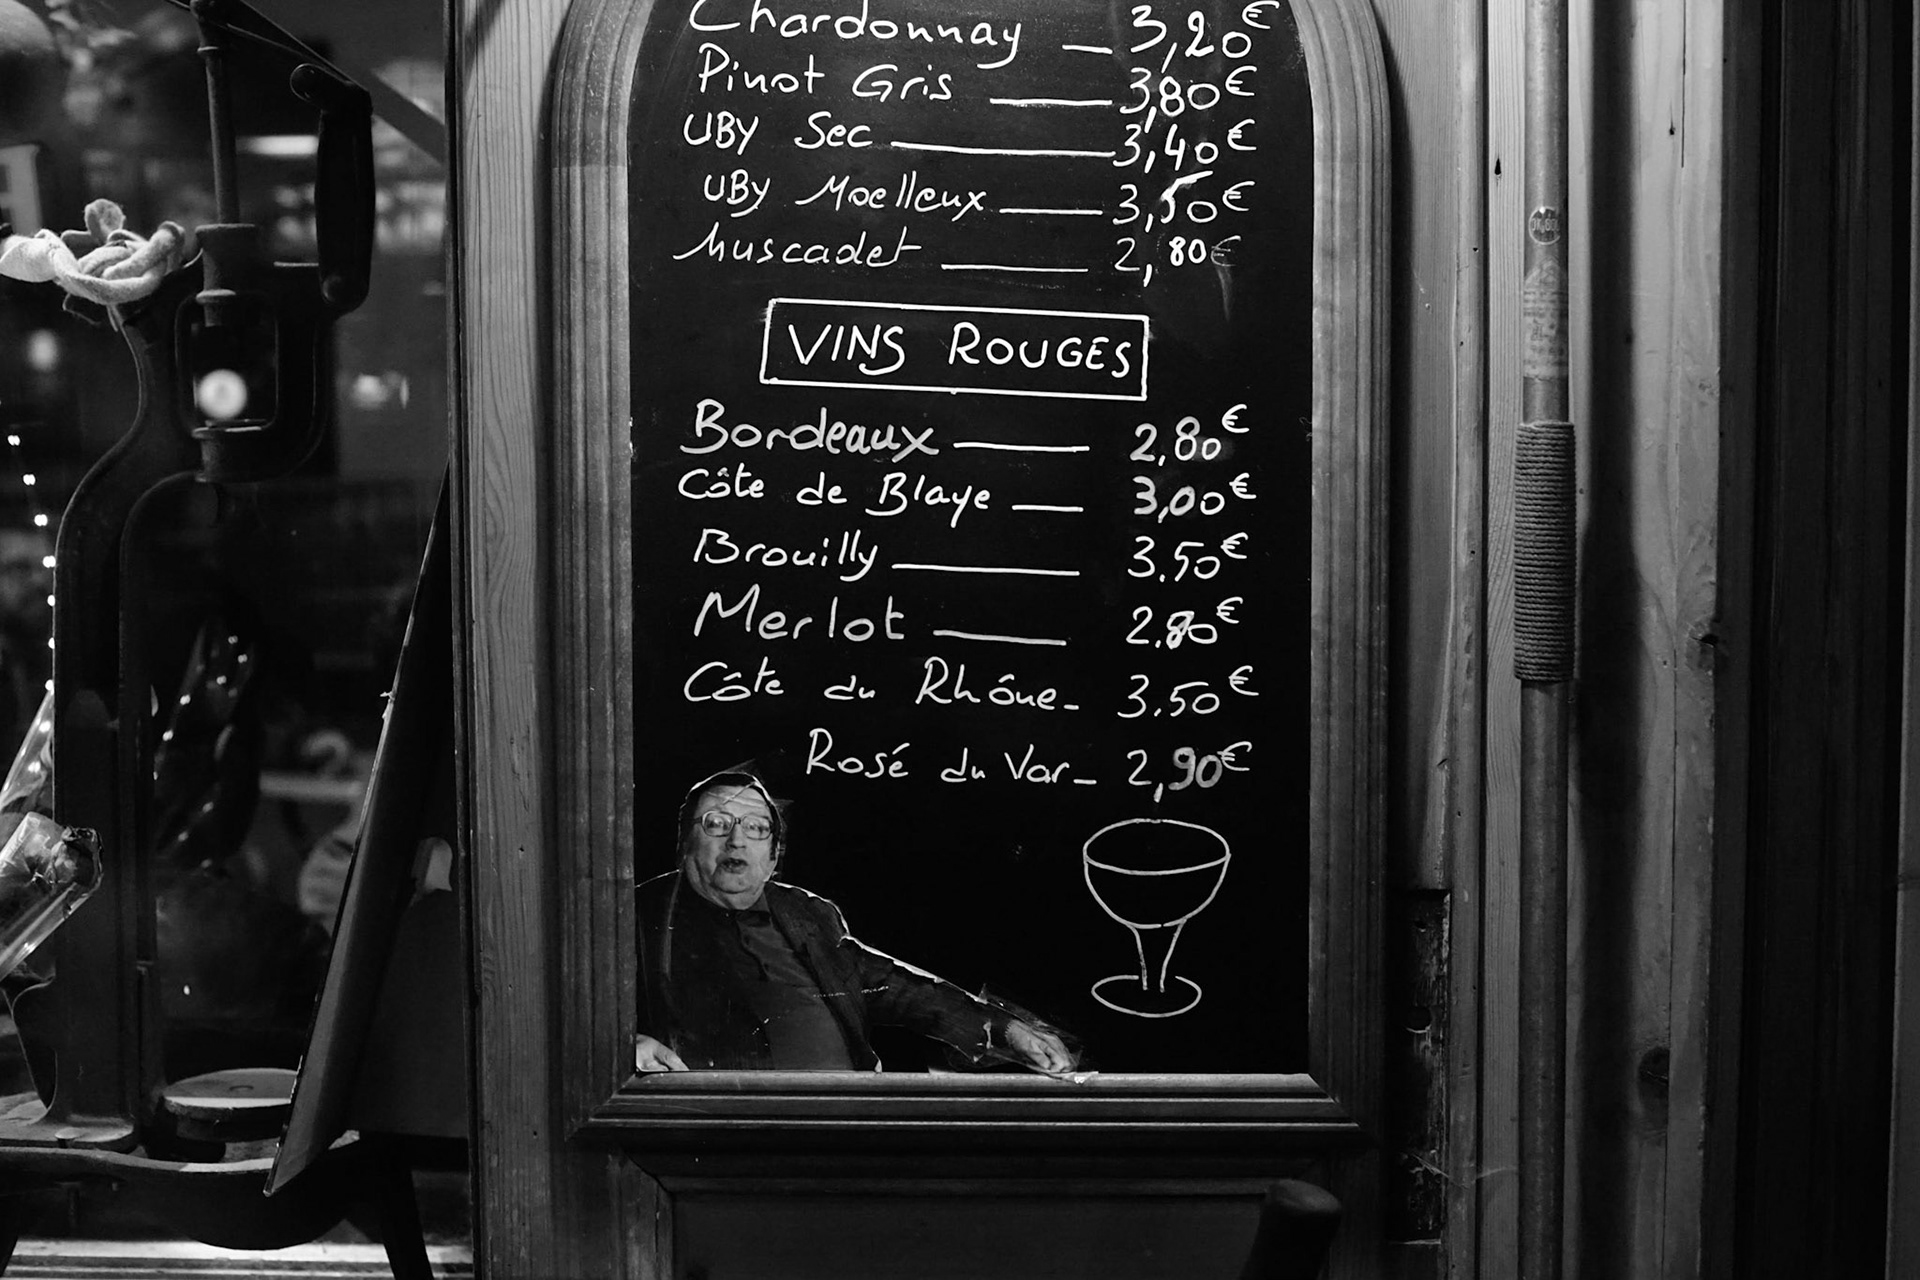 Chardonnay — 3,20€
Pinot Gris — 3,80€
UBY Sec — 3,40€
UBy Moelleux — 3,50€
Muscadet — 2,80€
VINS ROUGES
Bordeaux — 2,80€
Côte de Blaye — 3,00€
Brouilly — 3.50€
Merlot — 2.80€
Côte du Rhône - 3.50€
Rosé du Var - 2,90€